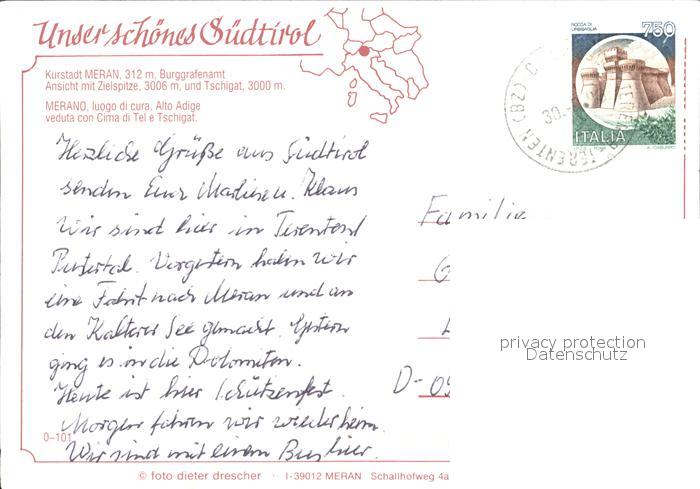 Unser schönes Südtirol
Kurstadt MERAN, 312 m, Burggrafenamt
Ansicht mit Zielspitze, 3006 m, und Tschigat, 3000 m.
MERANO, luogo di cura, Alto Adige
veduta con Cima di Tel e Tschigat.
ROCCA DI
URBISAGLIA
750
ITALIA
TERENTEN (BZ)
30.
Herzliche Grüße aus Südtirol
senden Euch u. Klaus
Wir sind hier in Terenten
Pustertal. Vorgestern haben wir
eine Fahrt nach Meran und an
den Kalterer See gemacht. Gestern
ging es in die Dolomiten.
Heute ist hier Schützenfest.
Morgen fahren wir wieder heim.
Wir sind mit einem Bus hier.
Familie
D-09
privacy protection
Datenschutz
0-101
© foto dieter drescher · I-39012 MERAN Schallhofweg 4a